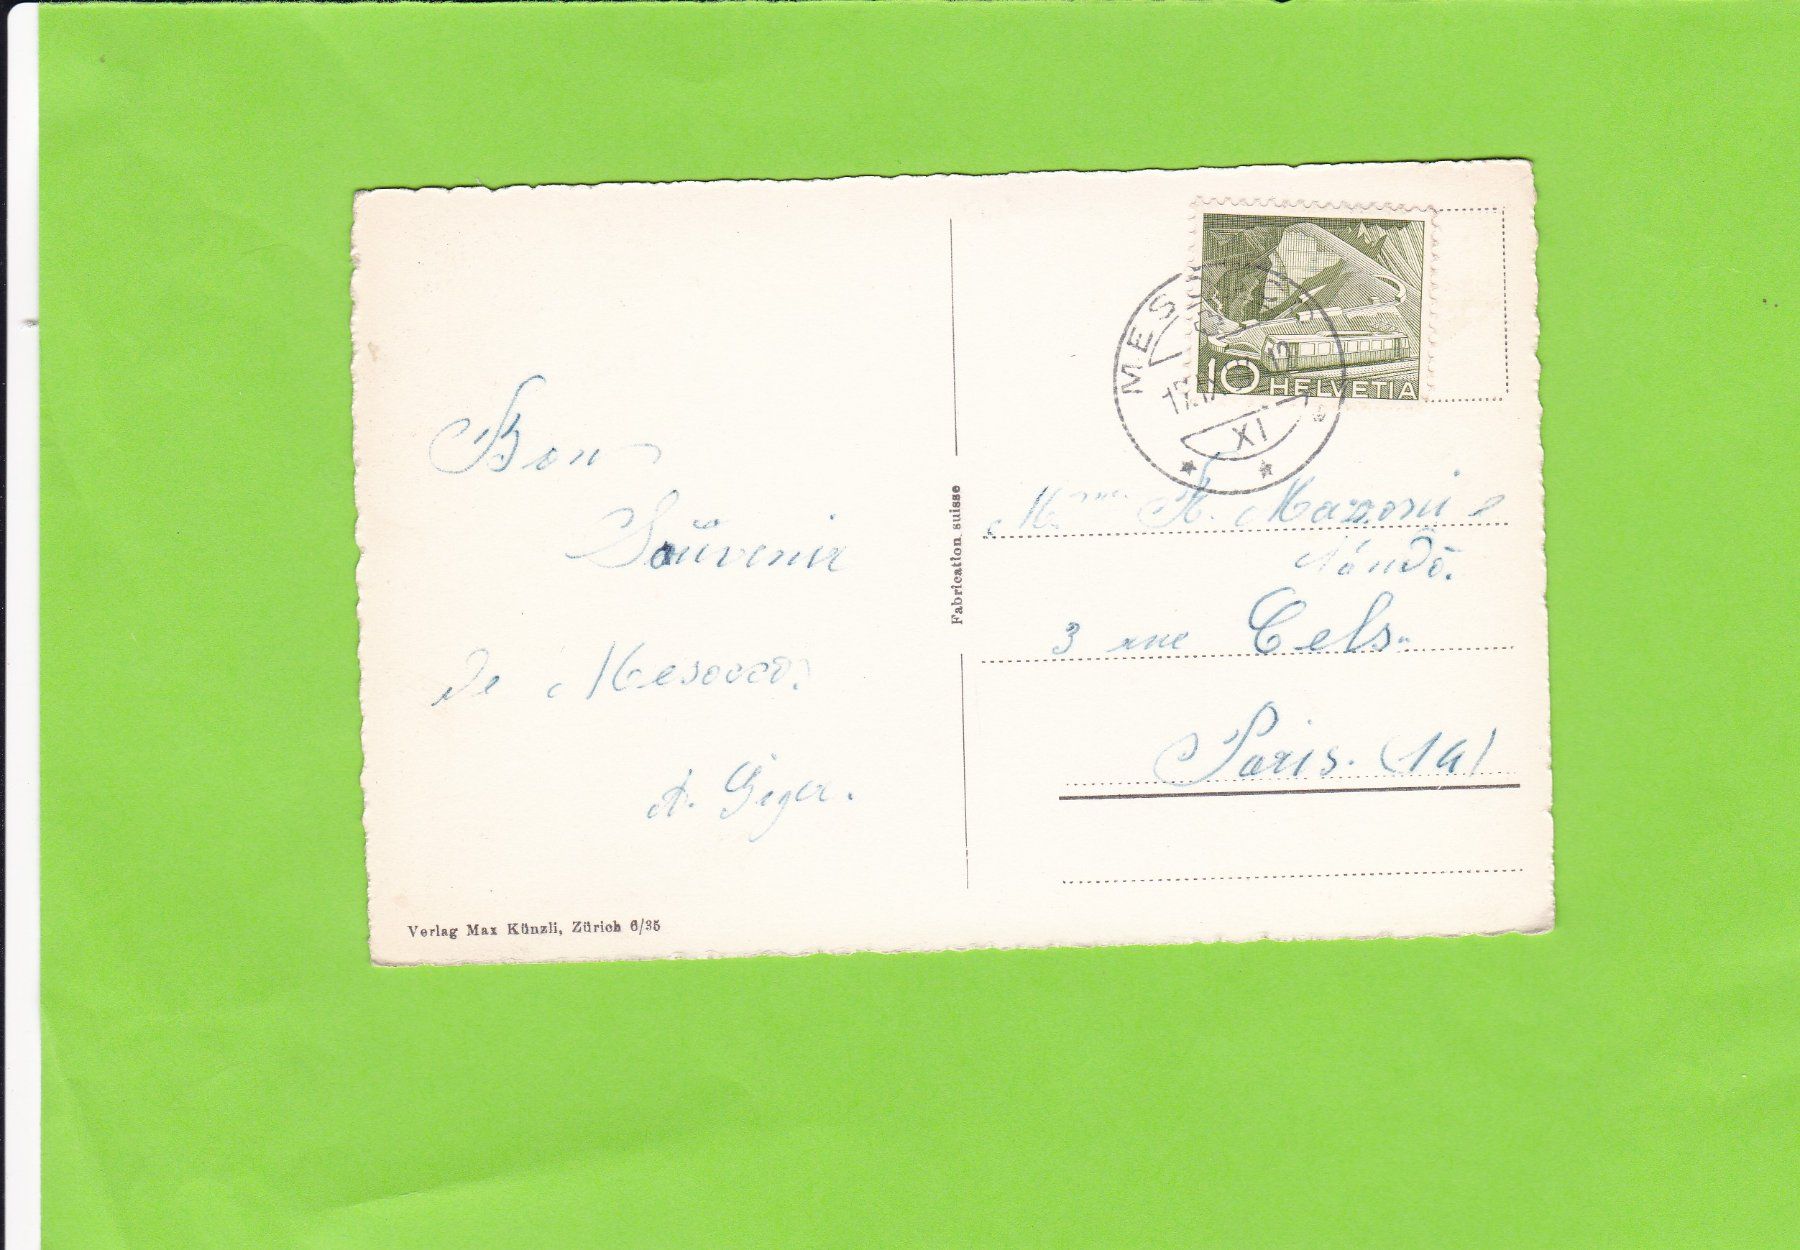 Bon
Souvenir
de Mesocco.
A. Giger.
Verlag Max Künzli, Zürich 6/35
Fabrication suisse
10 HELVETIA
XI
Mme
3 rue Cels.
Paris. (14)